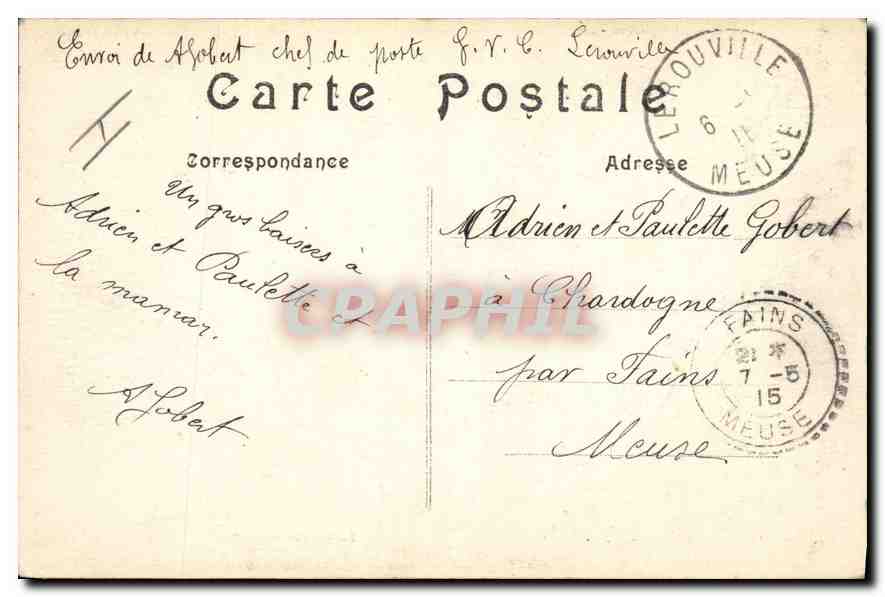 Envoi de A Gobert chef de poste G. V. C. Lérouville
Carte Postale
H
Correspondance
Adresse
Un gros baisers à
Adrien et Paulette et
la maman.
A Gobert
Adrien et Paulette Gobert
à Chardogne
par Fains
Meuse
LEROUVILLE
6
MEUSE
FAINS
21 *
7 -5
15
MEUSE
CPAPHIL